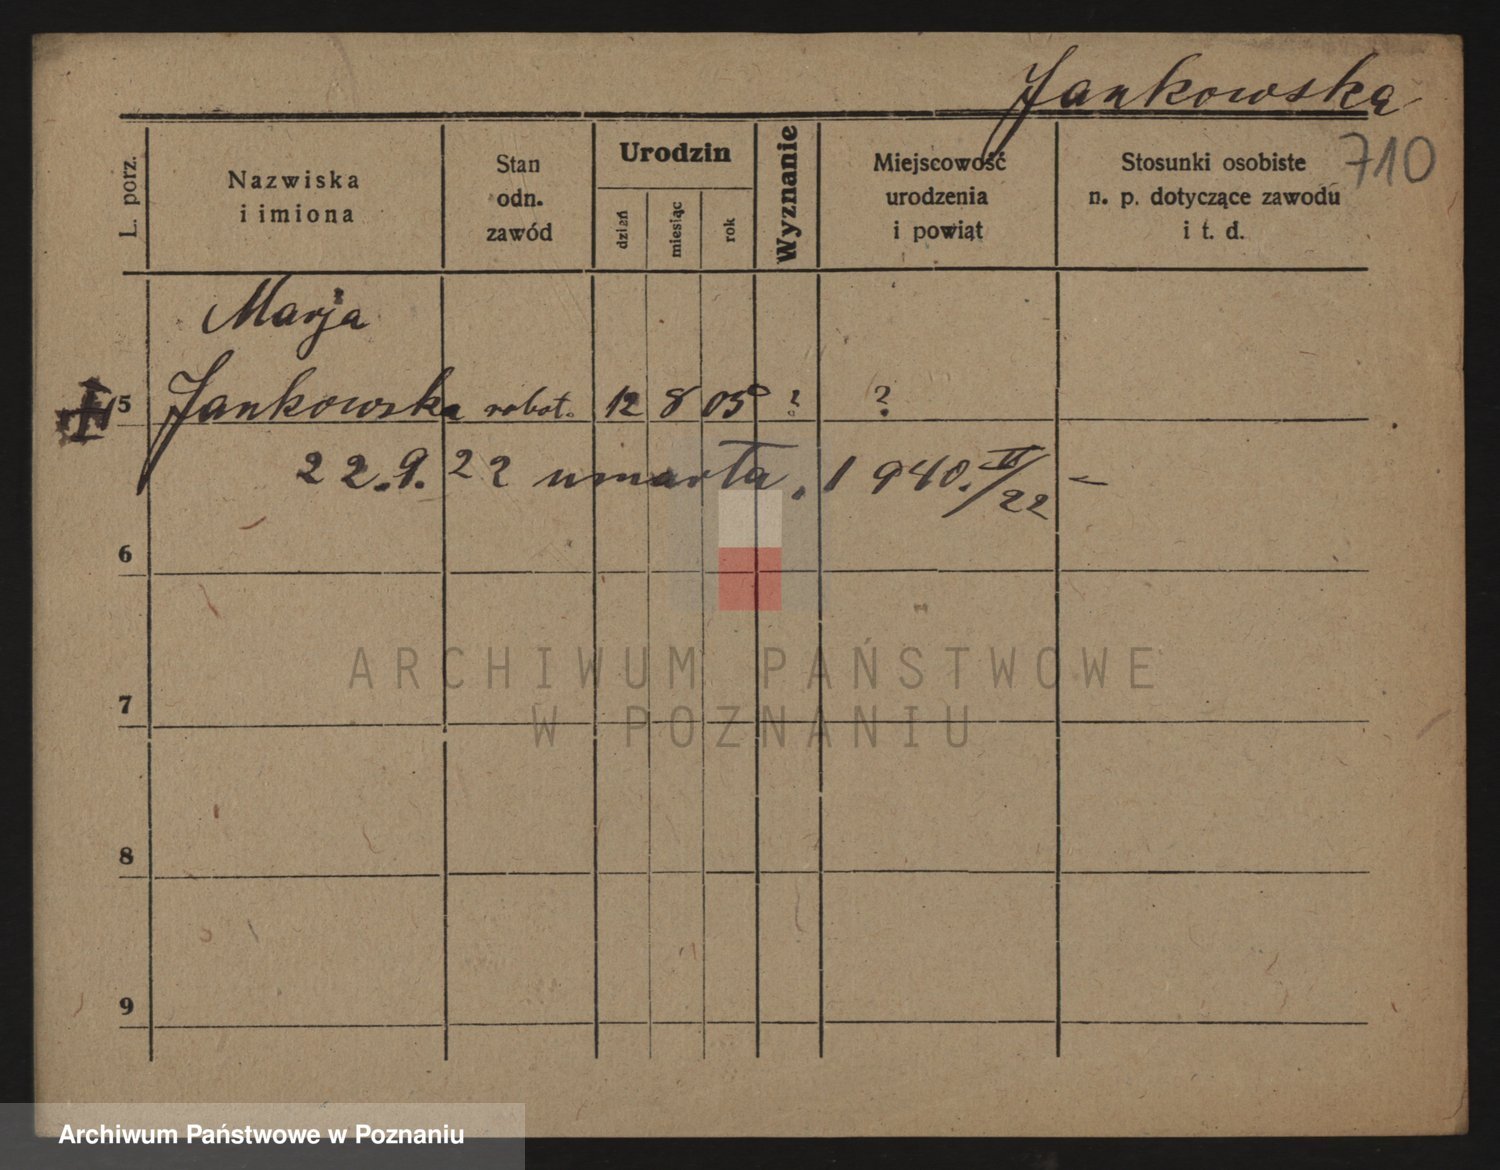 Jankowska
710
L. porz.
Nazwiska
i imiona
Stan
odn.
zawód
Urodzin
dzień
miesiąc
rok
Wyznanie
Miejscowość
urodzenia
i powiąt
Stosunki osobiste
n. p. dotyczące zawodu
i t. d.
Marja
5 Jankowska robot. 12 8 05 ? ?
22.9.22 umarła, 1940. II/22 –
6
ARCHIWUM PAŃSTWOWE
7
W POZNANIU
8
9
Archiwum Państwowe w Poznaniu